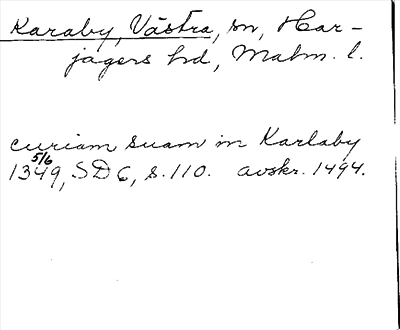 Karaby, Västra, sn, Har-
jagers hd, Malm. l.
curiam suam in Karlaby
5/6
1349, SD 6, s. 110. avskr. 1494.